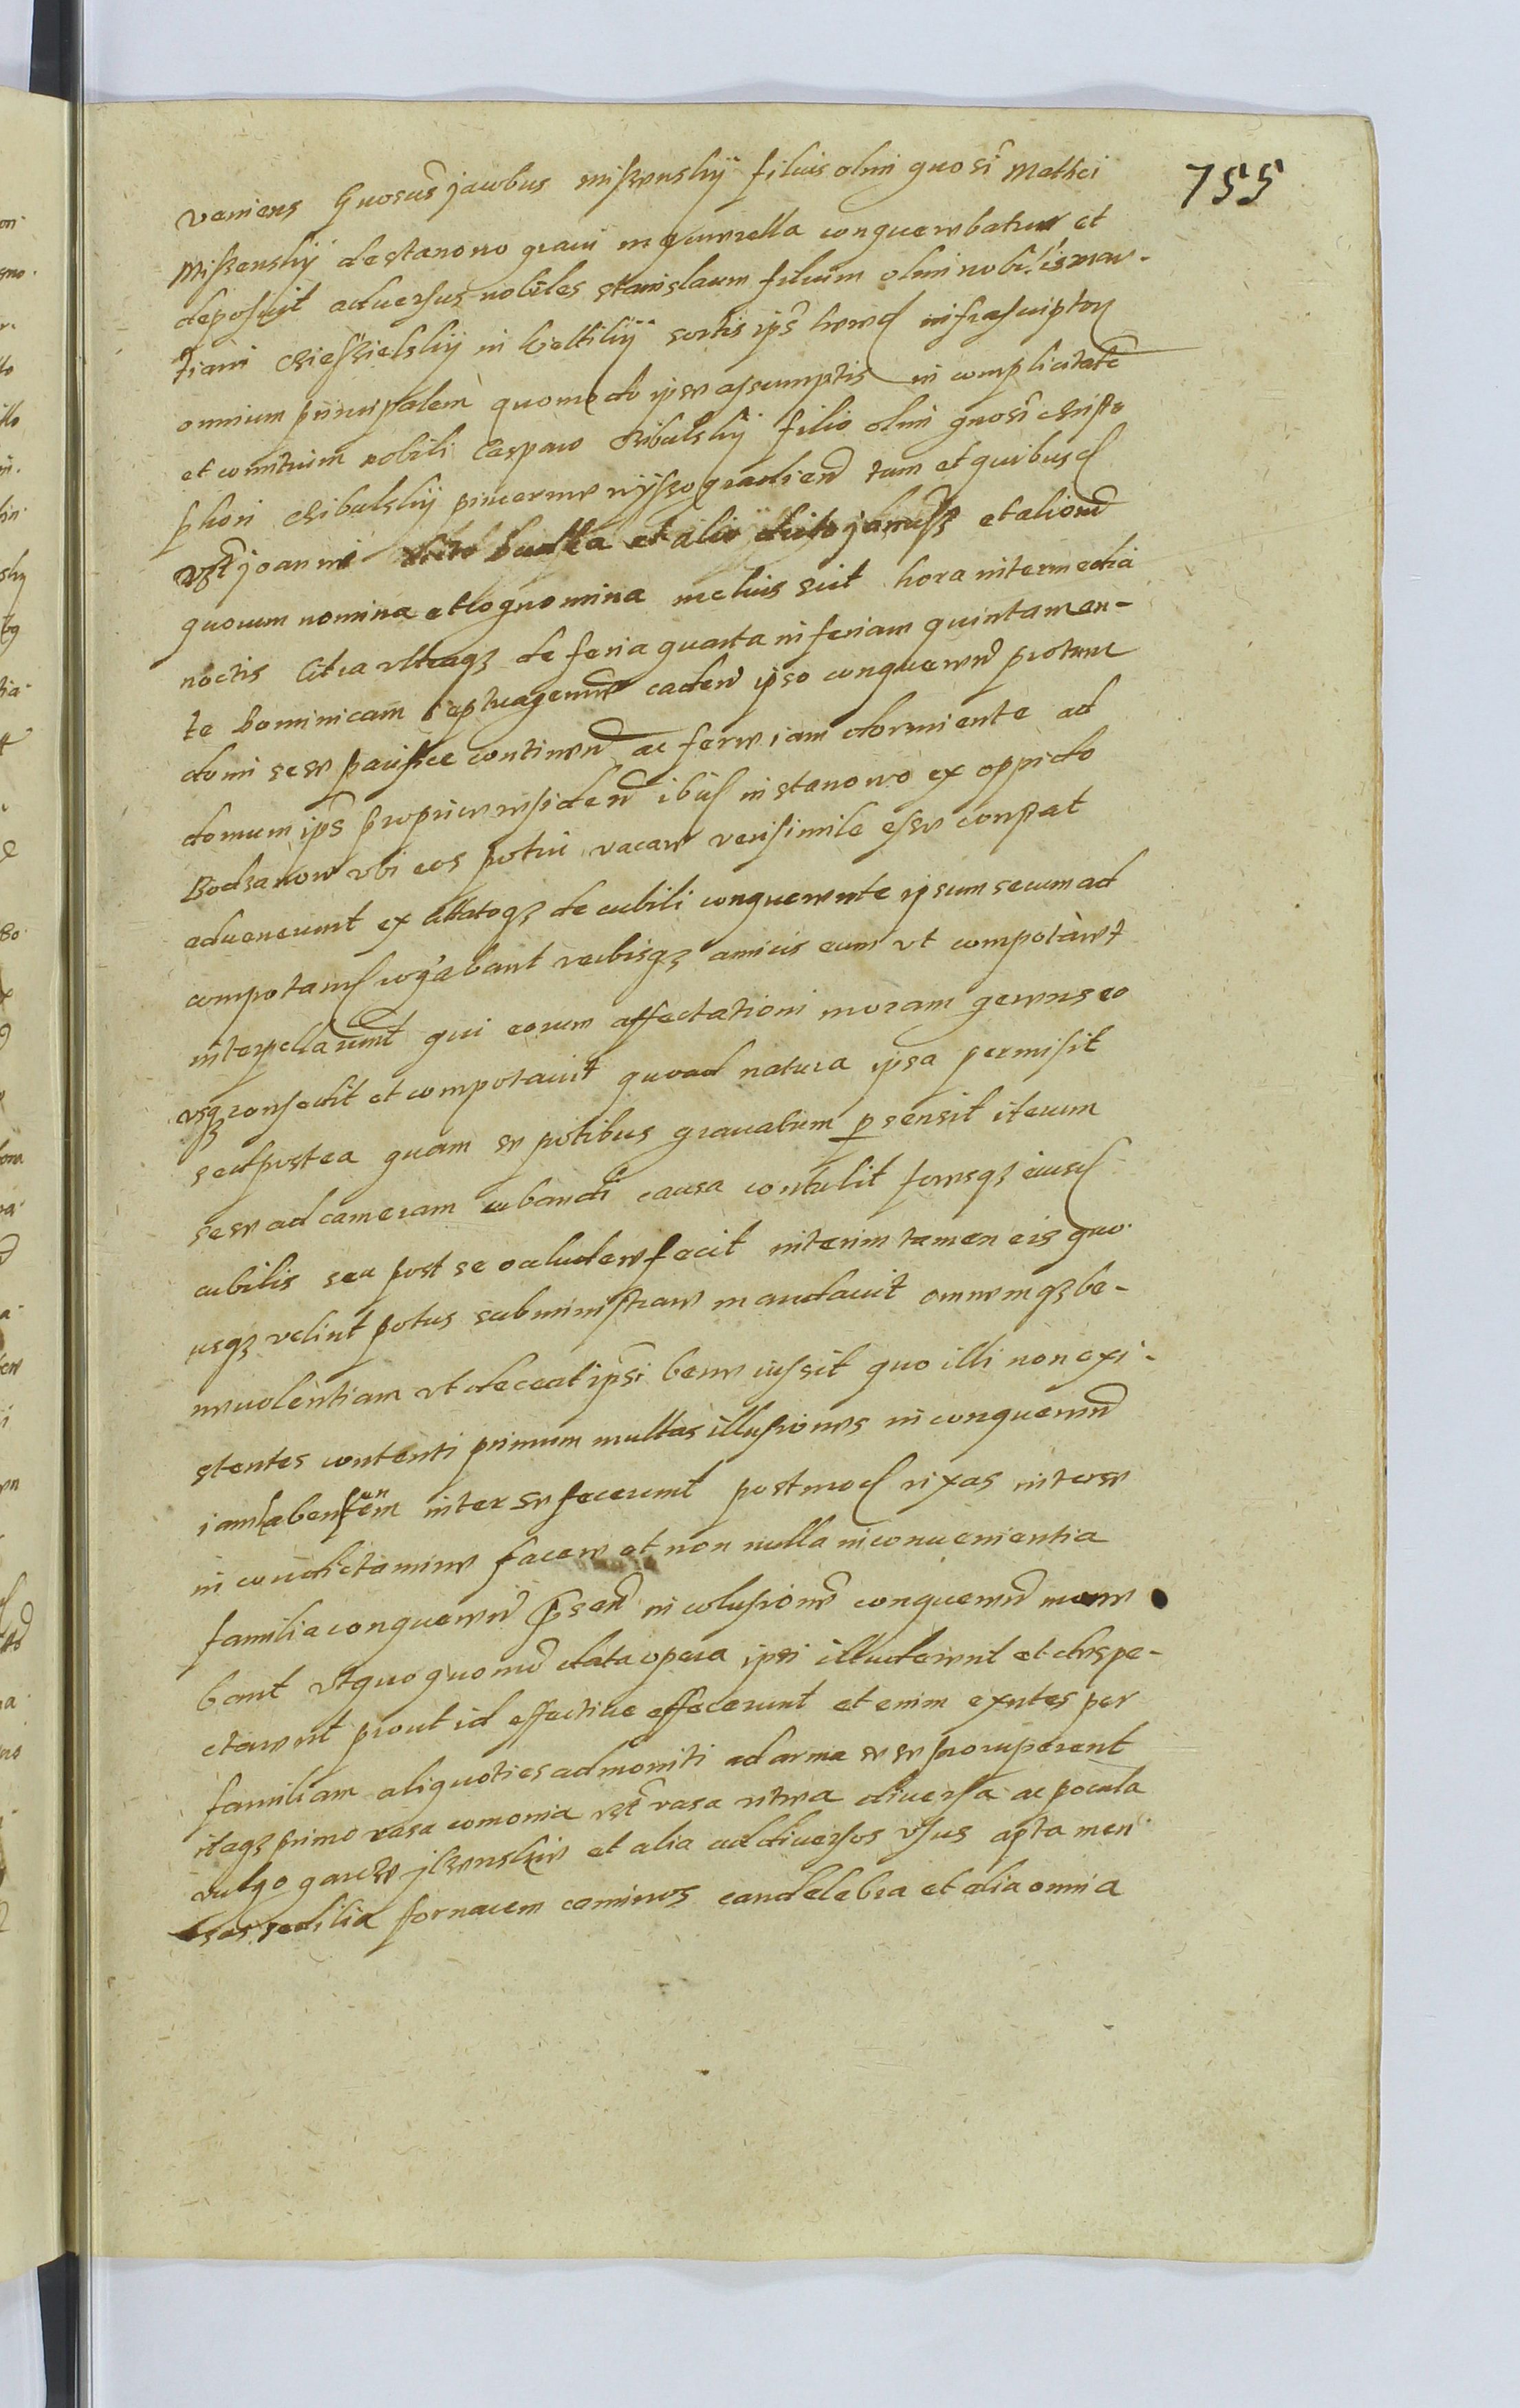 755
veniens Gnosus jacobus misszenskij filius olim gnosi Mathei
Misszenskij de stanowo gravi in querella conquerebatur et
deposuit adversus nobiles stanislaum filium olim nobilis mar-
tiani in sortis ips infrascriptor
omnium principalem quomodo ipse assumptis in complicitate
et comitivam nobili Casparo Cribulskij filio olim gnosi christo
phori Cribulskij pincerne vijssogradien tum et quibusd
vzt joanni dicto et alio dicto janussz et aliorum
quorum nomina et cognomina melius scit hora intermedia
noctis citra ultraqz de feria quarta in feriam quintam an-
te Dominicam septuagesime caden ipso conqueren protunc
domi sese pacifice continen ac fere iam dormiente ad
domum ips proprie residen ibid in stanowo ex oppido
Bodzanow ubi eos potui vacare verisimile esse constat
advenerunt ex de cubili conquerente ipsum secum ad
compotand cogebant verbisqz amicis eum ut compotaret
interpellarunt qui eorum affectationi moram gerens eo
usqz consedit et compotavit quoad natura ipsa permisit
sed postea quam se potibus gravatum p sensit iterum
sese ad cameram cubandi causa contulit foresqz eiusd
cubilis seu post se occludere fecit interim tamen eis quo
usqz velint potus subministrare mandavit omnemqz be-
nevolentiam ut deceat ipsi bene iussit quo illi non exi-
stentes contenti primum multas illusiones in conqueren
iam inter se fecerunt postmod rixas inter se
in condictamine facere et non nulla inconvenientia
familia conqueren psen in colusione conqueren move
bant ut quoquomod data opera ipsi illuderent et despe-
ctarent prout id effective effecerunt et enim exntes per
familiam aliquoties admoniti ad arma se se proruperent
itaqz primo vasa vzt vasa vitrea diversa ac pocula
vulgo garcze jlzenskie et alia ad diversos usus apta men
sas sedilia fornacem caminos candelebra et alia omnia